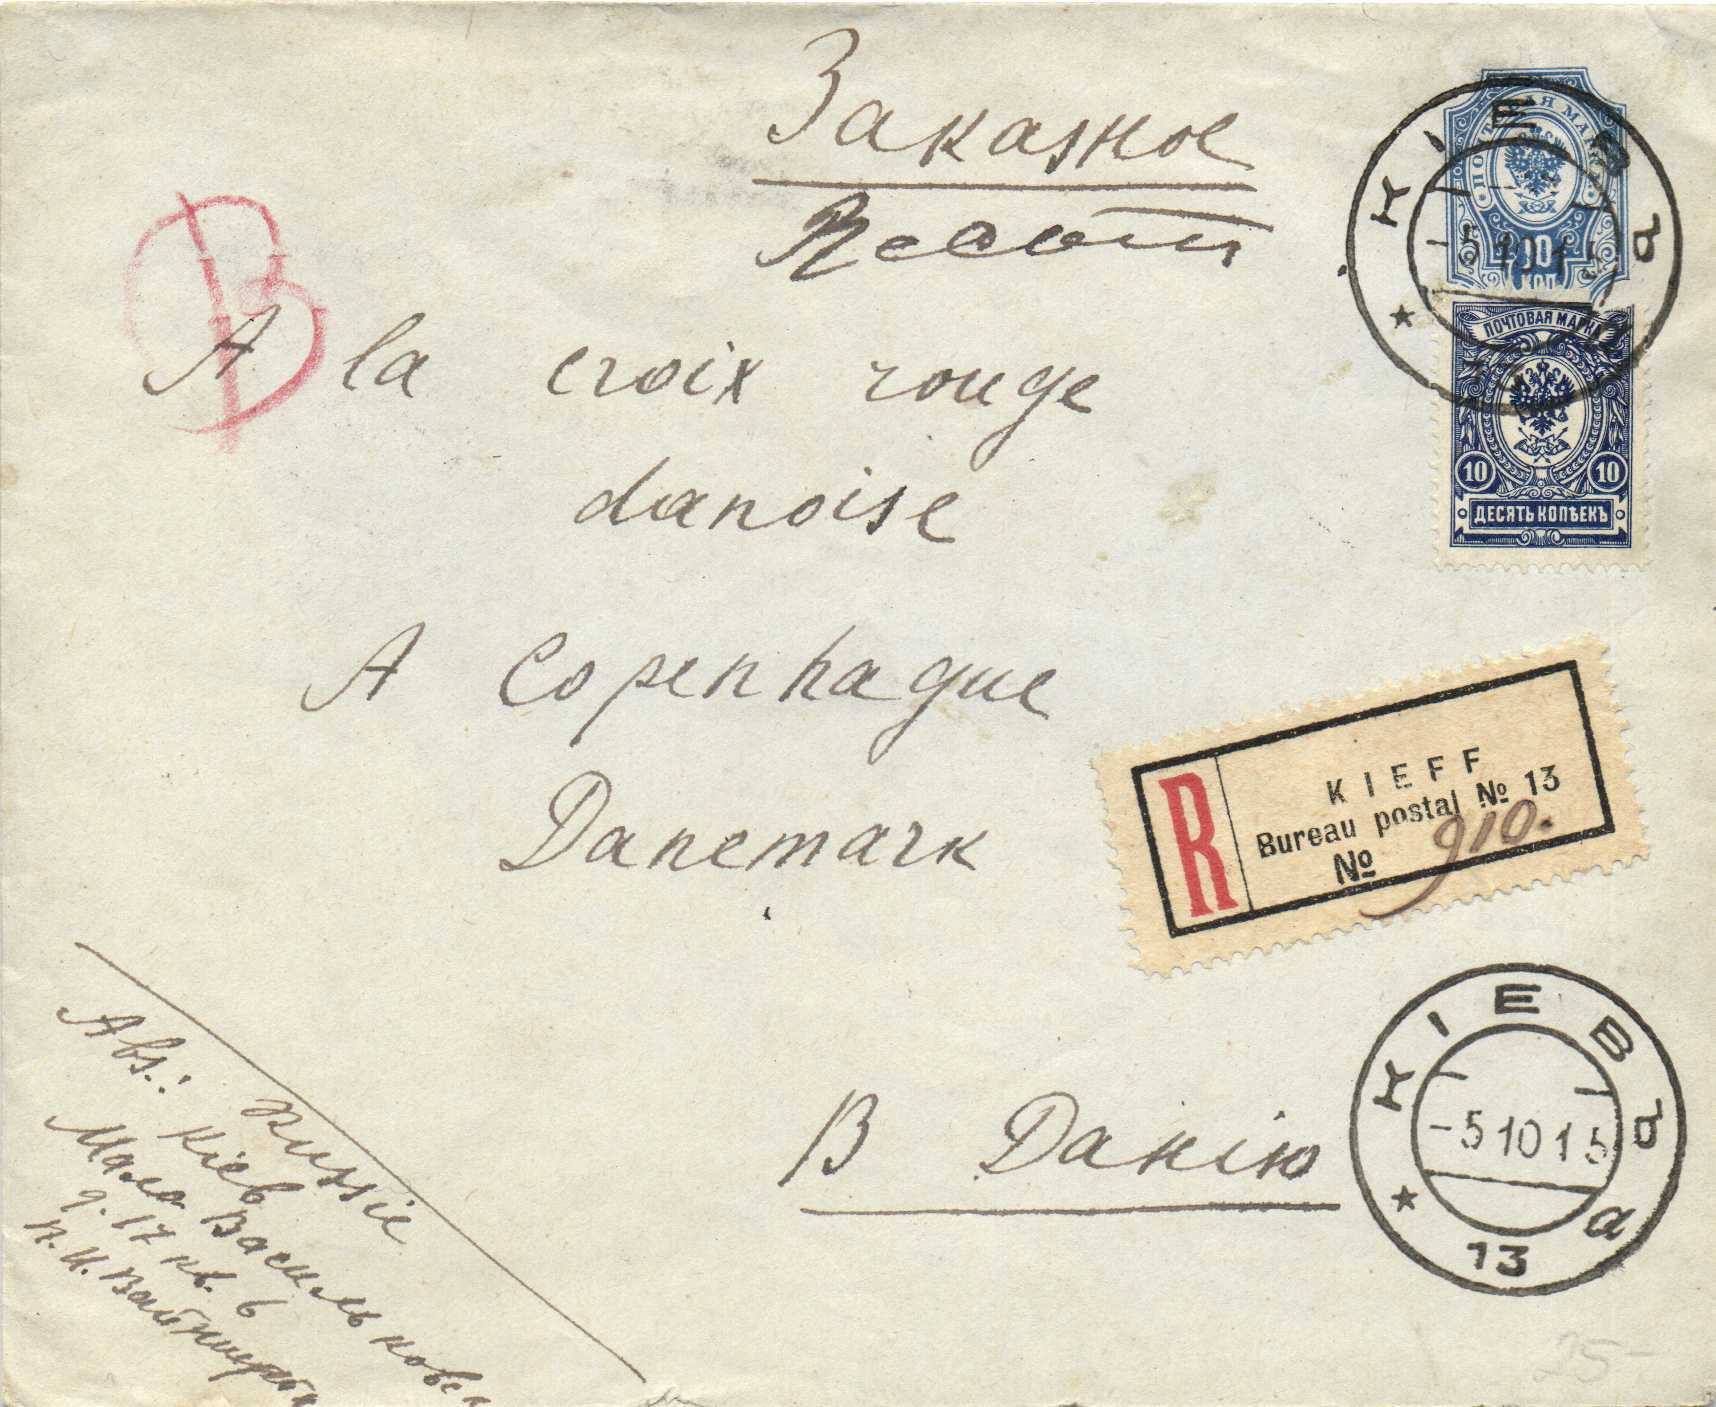 Заказное
Recom
B
A la croix rouge
danoise
A Copenhague
Danemark
В Данію
ПОЧТОВАЯ МАРКА
КОП
КІЕВЪ
-5 10 15
ПОЧТОВАЯ МАРКА
10 10
ДЕСЯТЬ КОПѢЕКЪ
R
KIEFF
Bureau postal № 13
№ 910.
КІЕВЪ
-5 10 15
13 а
Abs.: Russie
Кіев
Мала Васильковск
д. 17 кв. 6
25-